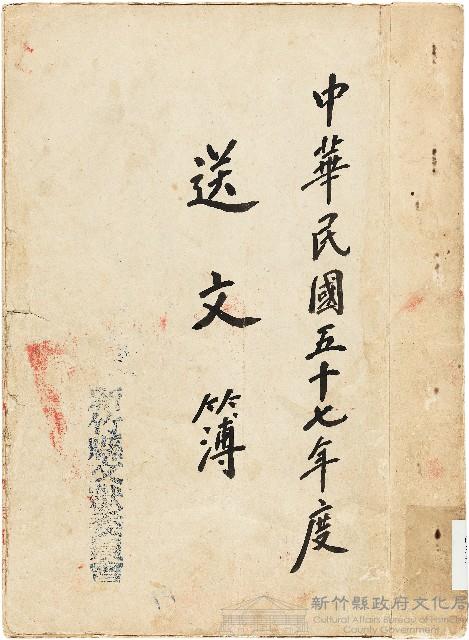 中華民國五十七年度
送文簿
新竹縣文獻委員會
新竹縣政府文化局
Cultural Affairs Bureau of Hsinchu
County Government